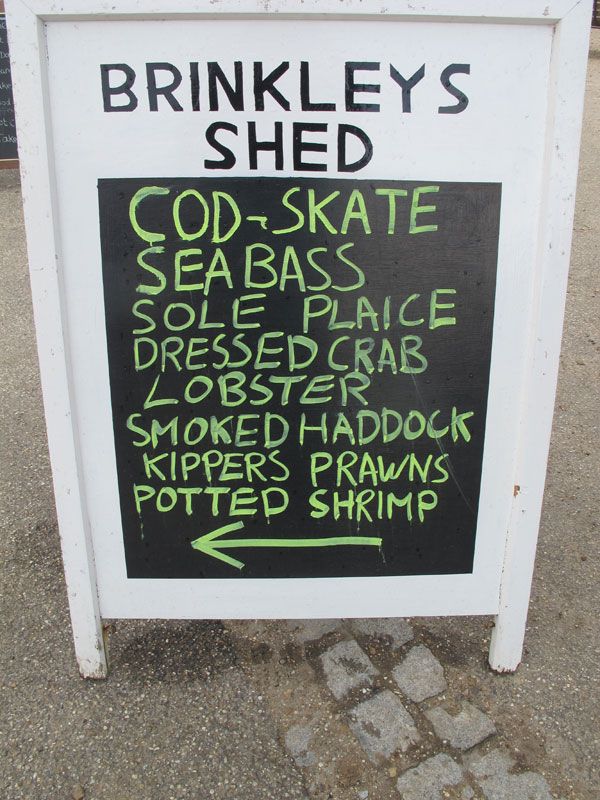 BRINKLEYS
SHED
COD-SKATE
SEA BASS
SOLE PLAICE
DRESSED CRAB
LOBSTER
SMOKED HADDOCK
KIPPERS PRAWNS
POTTED SHRIMP